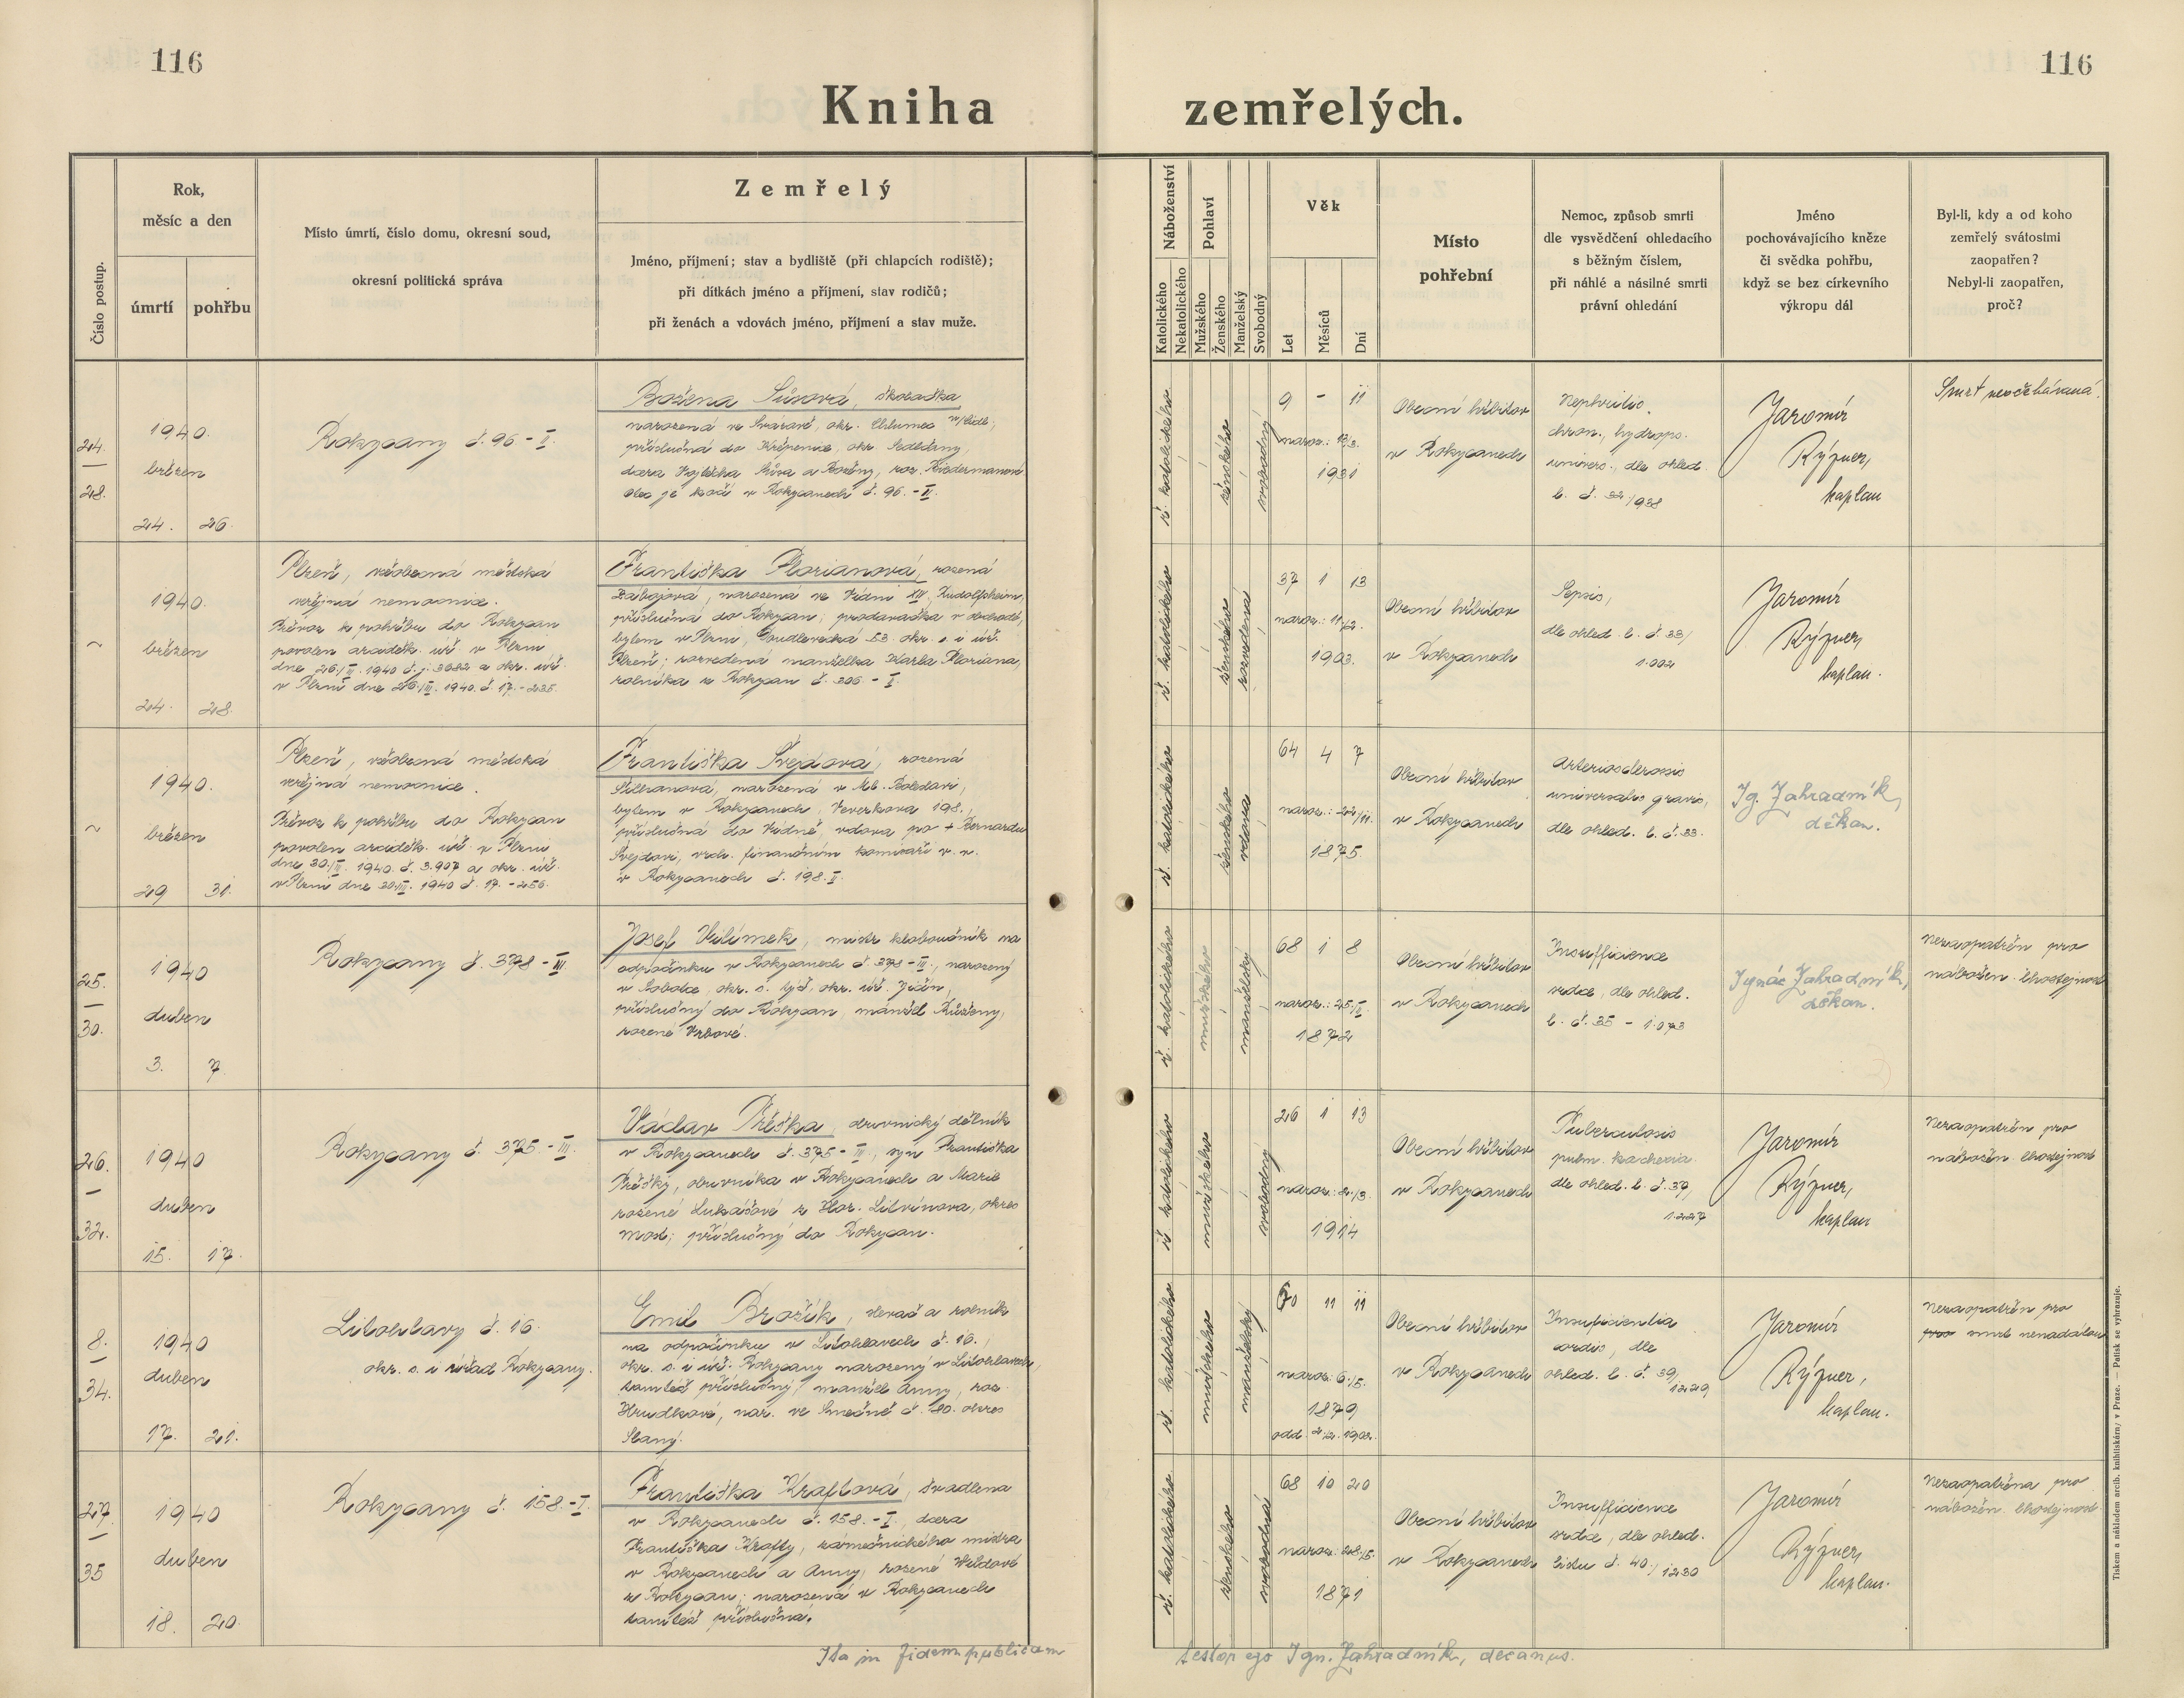 116
116
Kniha zemřelých.
Číslo postup.
Rok,
měsíc a den
úmrtí
pohřbu
Místo úmrtí, číslo domu, okresní soud,
okresní politická správa
Zemřelý
Jméno, příjmení; stav a bydliště (při chlapcích rodiště);
při dítkách jméno a příjmení, stav rodičů;
při ženách a vdovách jméno, příjmení a stav muže.
Náboženství
Katolického
Nekatolického
Pohlaví
Mužského
Ženského
Manželský
Svobodný
Věk
Let
Měsíců
Dní
Místo
pohřební
Nemoc, způsob smrti
dle vysvědčení ohledacího
s běžným číslem,
při náhlé a násilné smrti
právní ohledání
Jméno
pochovávajícího kněze
či svědka pohřbu,
když se bez církevního
výkropu dál
Byl-li, kdy a od koho
zemřelý svátostmi
zaopatřen?
Nebyl-li zaopatřen,
proč?
24.
28.
1940.
březen
24. 26.
Rokycany č. 96 - II.
Božena Sůsová, školačka
narozená ve Svaravě, okr. Chlumec n/Cidl.,
příslušná do Křepenic, okr. Sedlčany,
dcera Vojtěcha Sůsa a Boženy, roz. Biedermanové
Otec je kočí v Rokycanech č. 96. - II.
ř. katolického
ženského
svobodný
9 - 11
naroz.: 13/3.
1931
Obecní hřbitov
v Rokycanech
Nephritis
chron., hydrops.
univers., dle ohled.
l. č. 32/938
Jaromír
Rýzner,
kaplan
Smrt neočekávaná.
~
1940.
březen
24. 28.
Plzeň, všeobecná městská
veřejná nemocnice.
Převoz k pohřbu do Rokycan
povolen araděk. úř. v Plzni
dne 26./III. 1940 č. j. 3682 a okr. úř.
v Plzni dne 26./III. 1940. č. 17. - 235.
Františka Florianová, rozená
Zábojová, narozená ve Vídni XIV, Rudolfsheim,
příslušná do Rokycan, prodavačka v obchodě,
bytem v Plzni, Doudlevecká 53 okr. s. i úř.
Plzeň; rozvedená manželka Karla Floriana,
rolníka z Rokycan č. 306 - I.
ř. katolického
ženského
rozvedená
37 1 13
naroz.: 11/2.
1903.
Obecní hřbitov
v Rokycanech
Sepsis,
dle ohled. l. č. 33/
1.002
Jaromír
Rýzner,
kaplan.
~
1940.
březen
29 31.
Plzeň, všeobecná městská
veřejná nemocnice.
Převoz k pohřbu do Rokycan
povolen araděk. úř. v Plzni
dne 30./III. 1940. č. 3.907 a okr. úř.
v Plzni dne 30./III. 1940 č. 17. - 256.
Františka Švejdová, rozená
narozená v Ml. Boleslavi,
bytem v Rokycanech, Veverkova 198.,
příslušná do Vídně, vdova po + Bernardu
Švejdovi, vrch. finančním komisaři v. v.
v Rokycanech č. 198. II.
ř. katolického
ženského
vdova
64 4 7
naroz.: 22/11.
1875.
Obecní hřbitov
v Rokycanech
Arteriosclerosis
universalis gravis,
dle ohled. l. č. 33.
Ig. Zahradník,
děkan.
25.
30.
1940
duben
3. 7.
Rokycany č. 378 - III.
Josef Vilímek, mistr kloboučník na
odpočinku v Rokycanech č. 378 - III., narozený
v Sobotce, okr. s. týž, okr. úř. Jičín,
příslušný do Rokycan, manžel Růženy,
rozené Vrbové.
ř. katolického
mužského
manželský
68 1 8
naroz.: 25/II.
1872
Obecní hřbitov
v Rokycanech
Insufficience
srdce, dle ohled.
l. č. 35 - 1.073
Ignác Zahradník,
děkan.
Nezaopatřen pro
nábožen. lhostejnost
26.
32.
1940
duben
15. 17.
Rokycany č. 375 - III.
Václav Přeška, obuvnický dělník
v Rokycanech č. 375 - III., syn Františka
Přešky, obuvníka v Rokycanech a Marie
rozené Lukášové z Hor. Litvínova, okres
Most; příslušný do Rokycan.
ř. katolického
mužského
svobodný
26 1 13
naroz.: 2./3.
1914
Obecní hřbitov
v Rokycanech
Tuberculosis
pulm. kachexia
dle ohled. l. č. 37/
1.227
Jaromír
Rýzner,
kaplan
Nezaopatřen pro
nábožen. lhostejnost
8.
34.
1940
duben
17. 21.
Litohlavy č. 16.
okr. s. i úřad Rokycany.
Emil Brožík, slevač a rolník
na odpočinku v Litohlavech č. 16.,
okr. s. i úř. Rokycany narozený v Litohlavech,
tamtéž příslušný, manžel Anny, roz.
Hrudkové, nar. ve Smečně č. 180. okres
Slaný.
ř. katolického
mužského
manželský
60 11 11
naroz. 6./5.
1879
odd. 2./2. 1903.
Obecní hřbitov
v Rokycanech
Insuficientia
cordis, dle
ohled. l. č. 39/
1229
Jaromír
Rýzner,
kaplan.
Nezaopatřen pro
pro smrt nenadálou
27.
35
1940
duben
18. 20.
Rokycany č. 158. - I.
Františka Kraftová, švadlena
v Rokycanech č. 158. - I., dcera
Františka Krafty, kamenického mistra
v Rokycanech a Anny, rozené Weldové
z Rokycan; narozená v Rokycanech
tamtéž příslušná.
ř. katolického
ženského
svobodná
68 10 20
naroz.: 28./5.
1871
Obecní hřbitov
v Rokycanech
Insufficience
srdce, dle ohled.
listu č. 40./1230
Jaromír
Rýzner,
kaplan.
Nezaopatřena pro
nábožen. lhostejnost
Ita in fidem publicam testor ego Ign. Zahradník, decanus.
Tiskem a nákladem arcib. knihtiskárny v Praze. — Patisk se vyhrazuje.